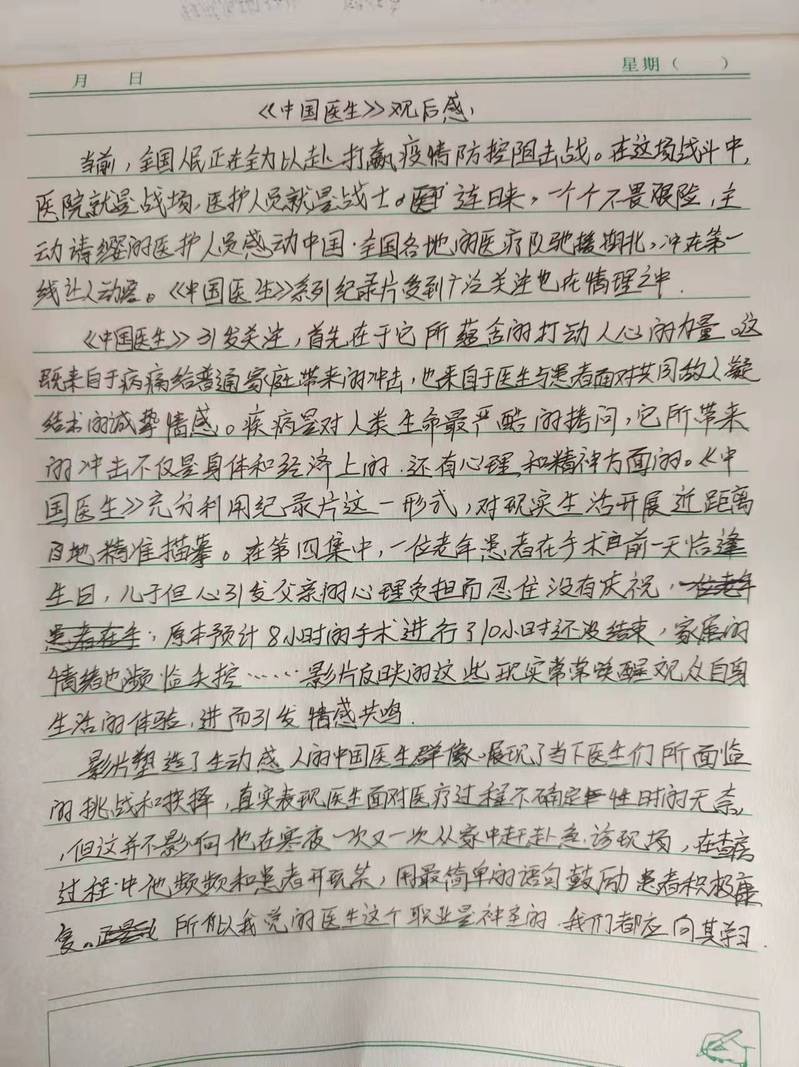 月 日 星期( )
《中国医生》观后感
当前，全国人民正在全力以赴打赢疫情防控阻击战。在这场战斗中，
医院就是战场，医护人员就是战士。连日来，一个个不畏艰险，主
动请缨的医护人员感动中国．全国各地的医疗队驰援湖北，冲在第一
线让人动容。《中国医生》系列纪录片受到广泛关注也在情理之中．
《中国医生》引发关注，首先在于它所蕴含的打动人心的力量。这
既来自于病痛给普通家庭带来的冲击，也来自于医生与患者面对共同敌人凝
结术的诚挚情感。疾病是对人类生命最严酷的拷问，它所带来
的冲击不仅是身体和经济上的．还有心理和精神方面的。《中
国医生》充分利用纪录片这一形式，对现实生活开展近距离
的精准描摹。在第四集中，一位老年患者在手术前一天恰逢
生日，儿子但心引发父亲的心理负担而忍住没有庆祝，一位老年
患者在手，原本预计8小时的手术进行了10小时还没结束，家属的
情绪也濒临失控……影片反映的这些现实常常唤醒观众自身
生活的体验，进而引发情感共鸣．
影片塑造了生动感人的中国医生群像、展现了当下医生们所面临
的挑战和抉择，真实表现医生面对医疗过程不确定性时的无奈
，但这并不影响他在寒夜一次又一次从家中赶赴急诊现场，在查房
过程中他频频和患者开玩笑，用最简单的语句鼓励患者积极康
复。所以我觉的医生这个职业是神圣的．我们都应向其学习．